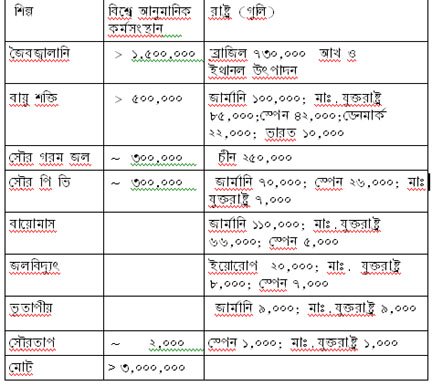 শিল্প
বিশ্বে আনুমানিক
কর্মসংস্থান
রাষ্ট্র (গুলি)
জৈবজ্বালানি
> ১,৫০০,০০০
ব্রাজিল ৭৩০,০০০ আখ ও
ইথানল উৎপাদন
বায়ু শক্তি
> ৫০০,০০০
জার্মানি ১০০,০০০; মাঃ. যুক্তরাষ্ট্র
৮৫,০০০;স্পেন ৪২,০০০;ডেনমার্ক
২২,০০০; ভারত ১০,০০০
সৌর গরম জল
~ ৩০০,০০০
চীন ২৫০,০০০
সৌর পি ভি
~ ৩০০,০০০
জার্মানি ৭০,০০০; স্পেন ২৬,০০০; মাঃ
যুক্তরাষ্ট্র ৭,০০০
বায়োমাস
জার্মানি ১১০,০০০; মাঃ. যুক্তরাষ্ট্র
৬৬,০০০; স্পেন ৫,০০০
জলবিদ্যুৎ
ইয়োরোপ ২০,০০০; মাঃ. যুক্তরাষ্ট্র
৮,০০০; স্পেন ৭,০০০
ভূতাপীয়
জার্মানি ৯,০০০; মাঃ. যুক্তরাষ্ট্র ৯,০০০
সৌরতাপ
~ ২,০০০
স্পেন ১,০০০; মাঃ. যুক্তরাষ্ট্র ১,০০০
মোট
> ৩,০০০,০০০